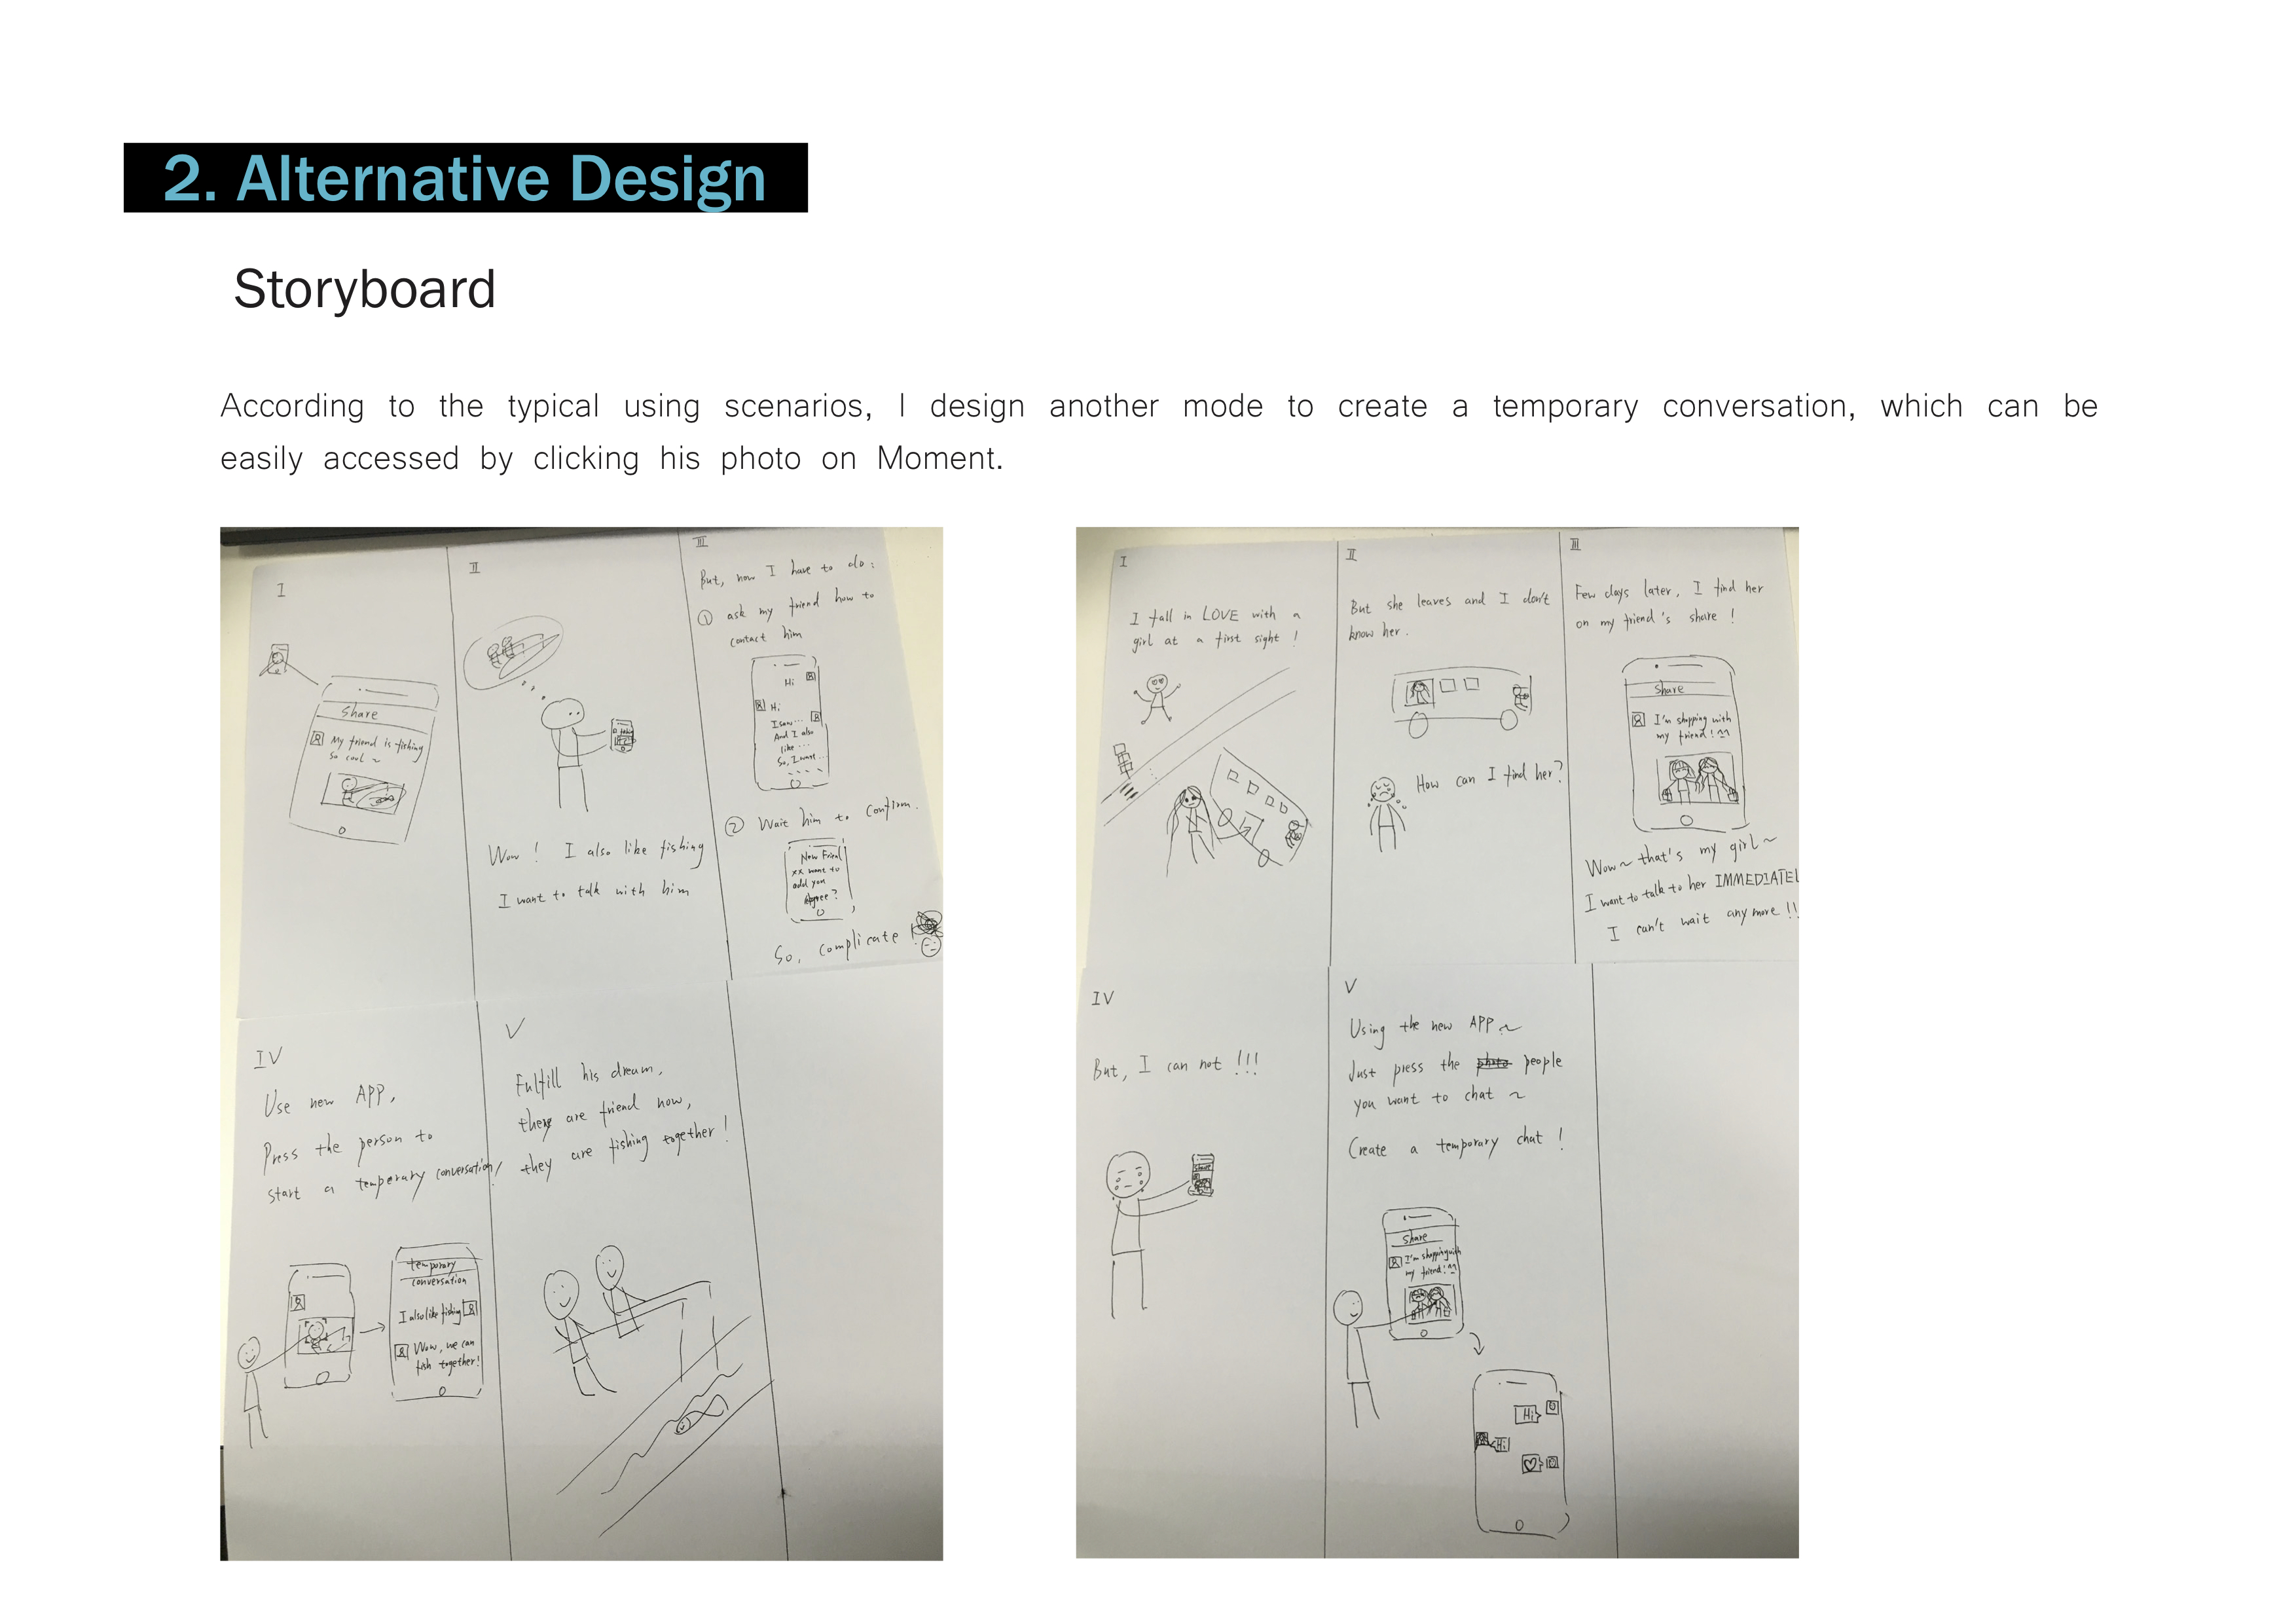 2. Alternative Design
Storyboard
According to the typical using scenarios, I design another mode to create a temporary conversation, which can be
easily accessed by clicking his photo on Moment.
I
Share
My friend is fishing
so cool ~
II
Wow ! I also like fishing
I want to talk with him
III
But, now I have to do:
① ask my friend how to
contact him
Hi
Hi
I saw ...
And I also
like ...
So, I want ...
② Wait him to confirm.
New Friend
xx want to
add you
Agree?
So, complicate !
IV
Use new APP,
Press the person to
start a temporary conversation!
temporary
conversation
I also like fishing
Wow, we can
fish together!
V
Fulfill his dream,
they are friend now,
they are fishing together !
I
I fall in LOVE with a
girl at a first sight !
II
But she leaves and I don't
know her.
How can I find her?
III
Few days later, I find her
on my friend's share !
Share
I'm shopping with
my friend! ^^
Wow~ that's my girl~
I want to talk to her IMMEDIATEL
I can't wait anymore !!
IV
But, I can not !!!
Share
V
Using the new APP ~
Just press the people
you want to chat ~
Create a temporary chat !
Share
I'm shopping with
my friend! ^^
Hi
Hi